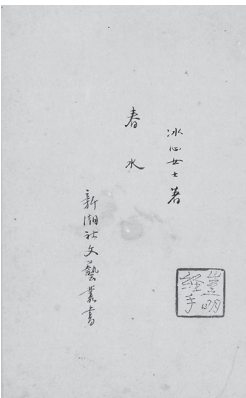 冰心女士著
春水
新潮社文藝叢書
豈明經手